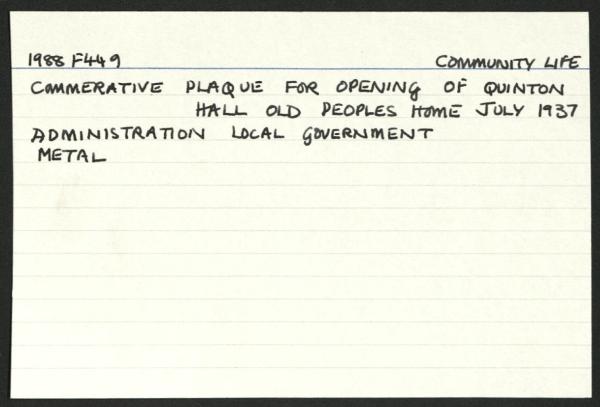 1988 F449 COMMUNITY LIFE
COMMERATIVE PLAQUE FOR OPENING OF QUINTON
HALL OLD PEOPLES HOME JULY 1937
ADMINISTRATION LOCAL GOVERNMENT
METAL